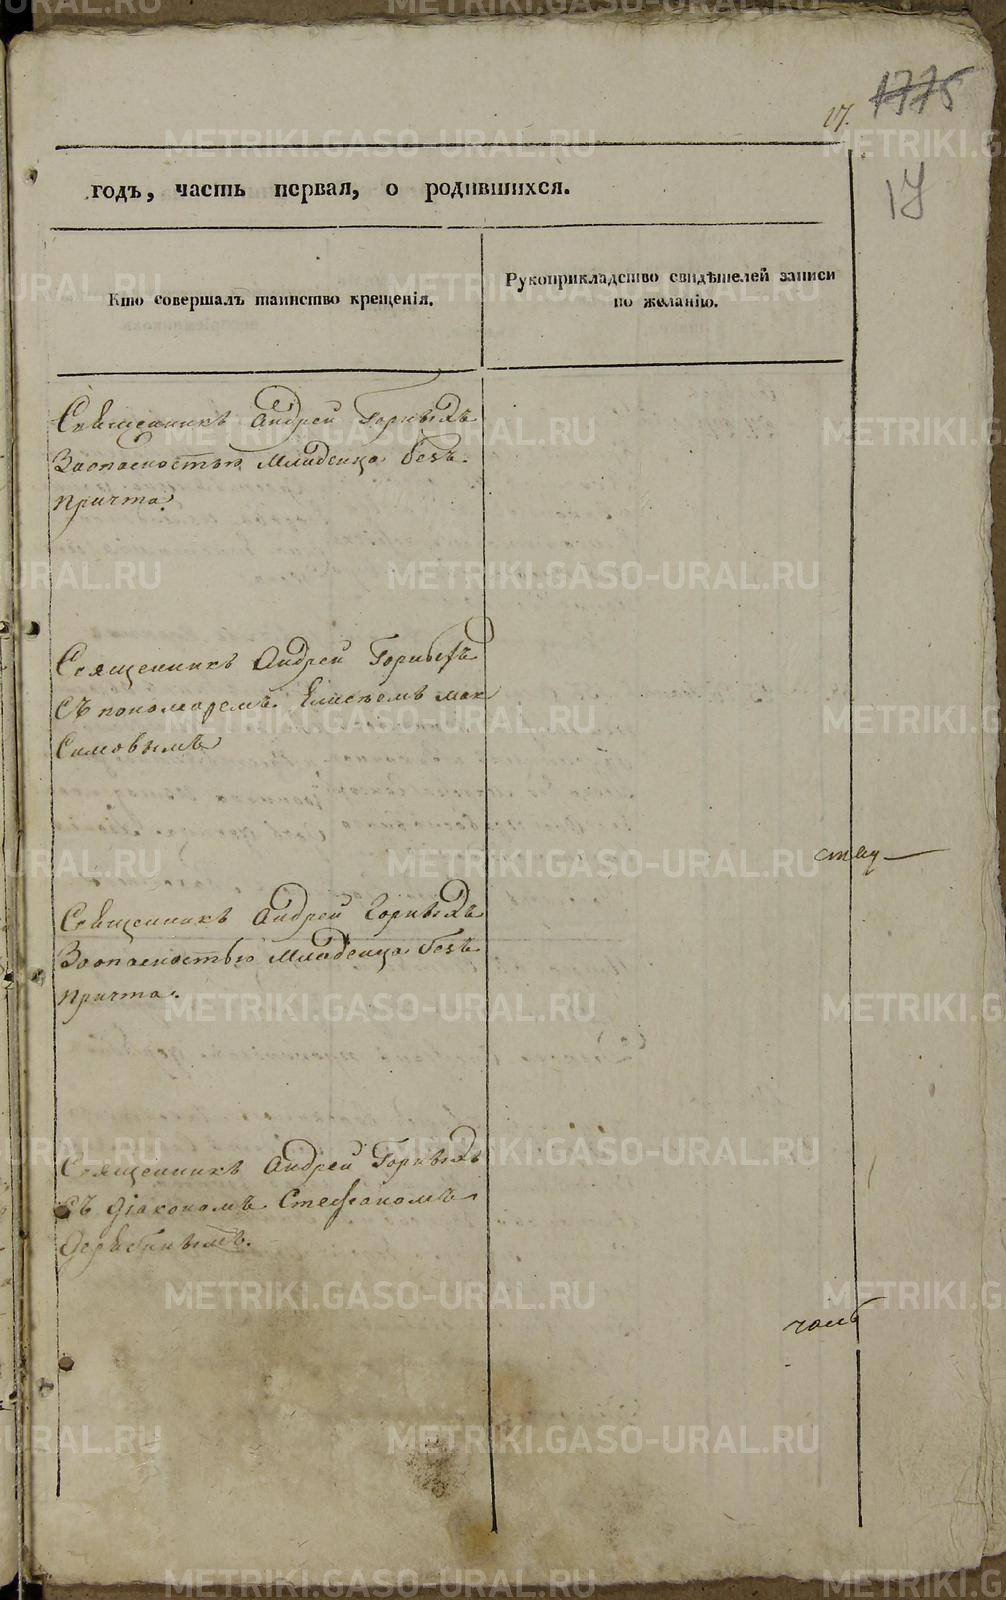 17.
1775
17
годъ, часть первая, о родившихся.
Кто совершалъ таинство крещенія.
Рукоприкладство свидѣтелей записи
по желанію.
Священникъ Андрей Горныхъ
Заопасностью Младенца безъ
причта.
Священникъ Андрей Горныхъ
Съ пономаремъ Елисѣемъ мак
Симовымъ
Священникъ Андрей Горныхъ
Заопасностью Младенца безъ
причта.
Священникъ Андрей Горныхъ
Съ діакономъ Стефаномъ
METRIKI.GASO-URAL.RU